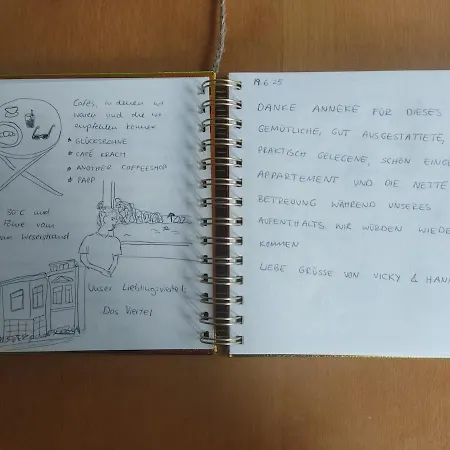 Cafés, in denen wir
waren und die wir
empfehlen können
GLÜCKSBOHNE
CAFÉ KRACH
ANOTHER COFFEESHOP
PAPP
30°C und
vom
Weserstrand
Unser Lieblingsviertel:
Das Viertel
19.6.25
DANKE ANNEKE FÜR DIESES
GEMÜTLICHE, GUT AUSGESTATTETE,
PRAKTISCH GELEGENE, SCHÖN
APPARTEMENT UND DIE NETTE
BETREUUNG WÄHREND UNSERES
AUFENTHALTS. WIR WÜRDEN WIEDE
KOMMEN
LIEBE GRÜSSE VON VICKY &